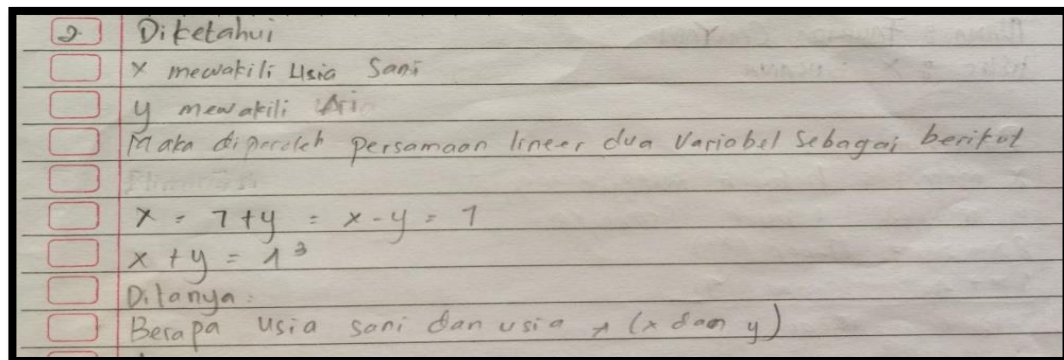 2. Diketahui
x mewakili Usia Sani
y mewakili Ari
Maka diperoleh persamaan lineer dua Variabel Sebagai berikut
x = 7 + y = x - y = 7
x + y = 13
Ditanya :
Berapa usia sani dan usia (x dan y)